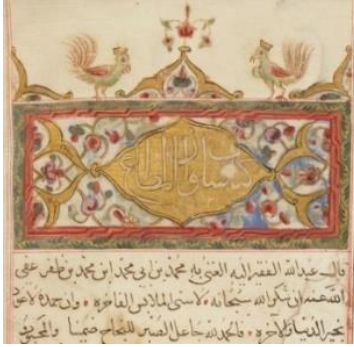 كتاب سلوان المطاع
قال عبد الله الفقير اليه الغني به محمد بن ابي محمد ابن محمد بن ظفر عفى
الله عنه ان شكر الله سبحانه لاسنى الملابس الفاخرة وان حمده لاعود
بخير الدنيا والآخرة فالحمد لله جاعل الصبر للنجاح ضمينا والمحبوب